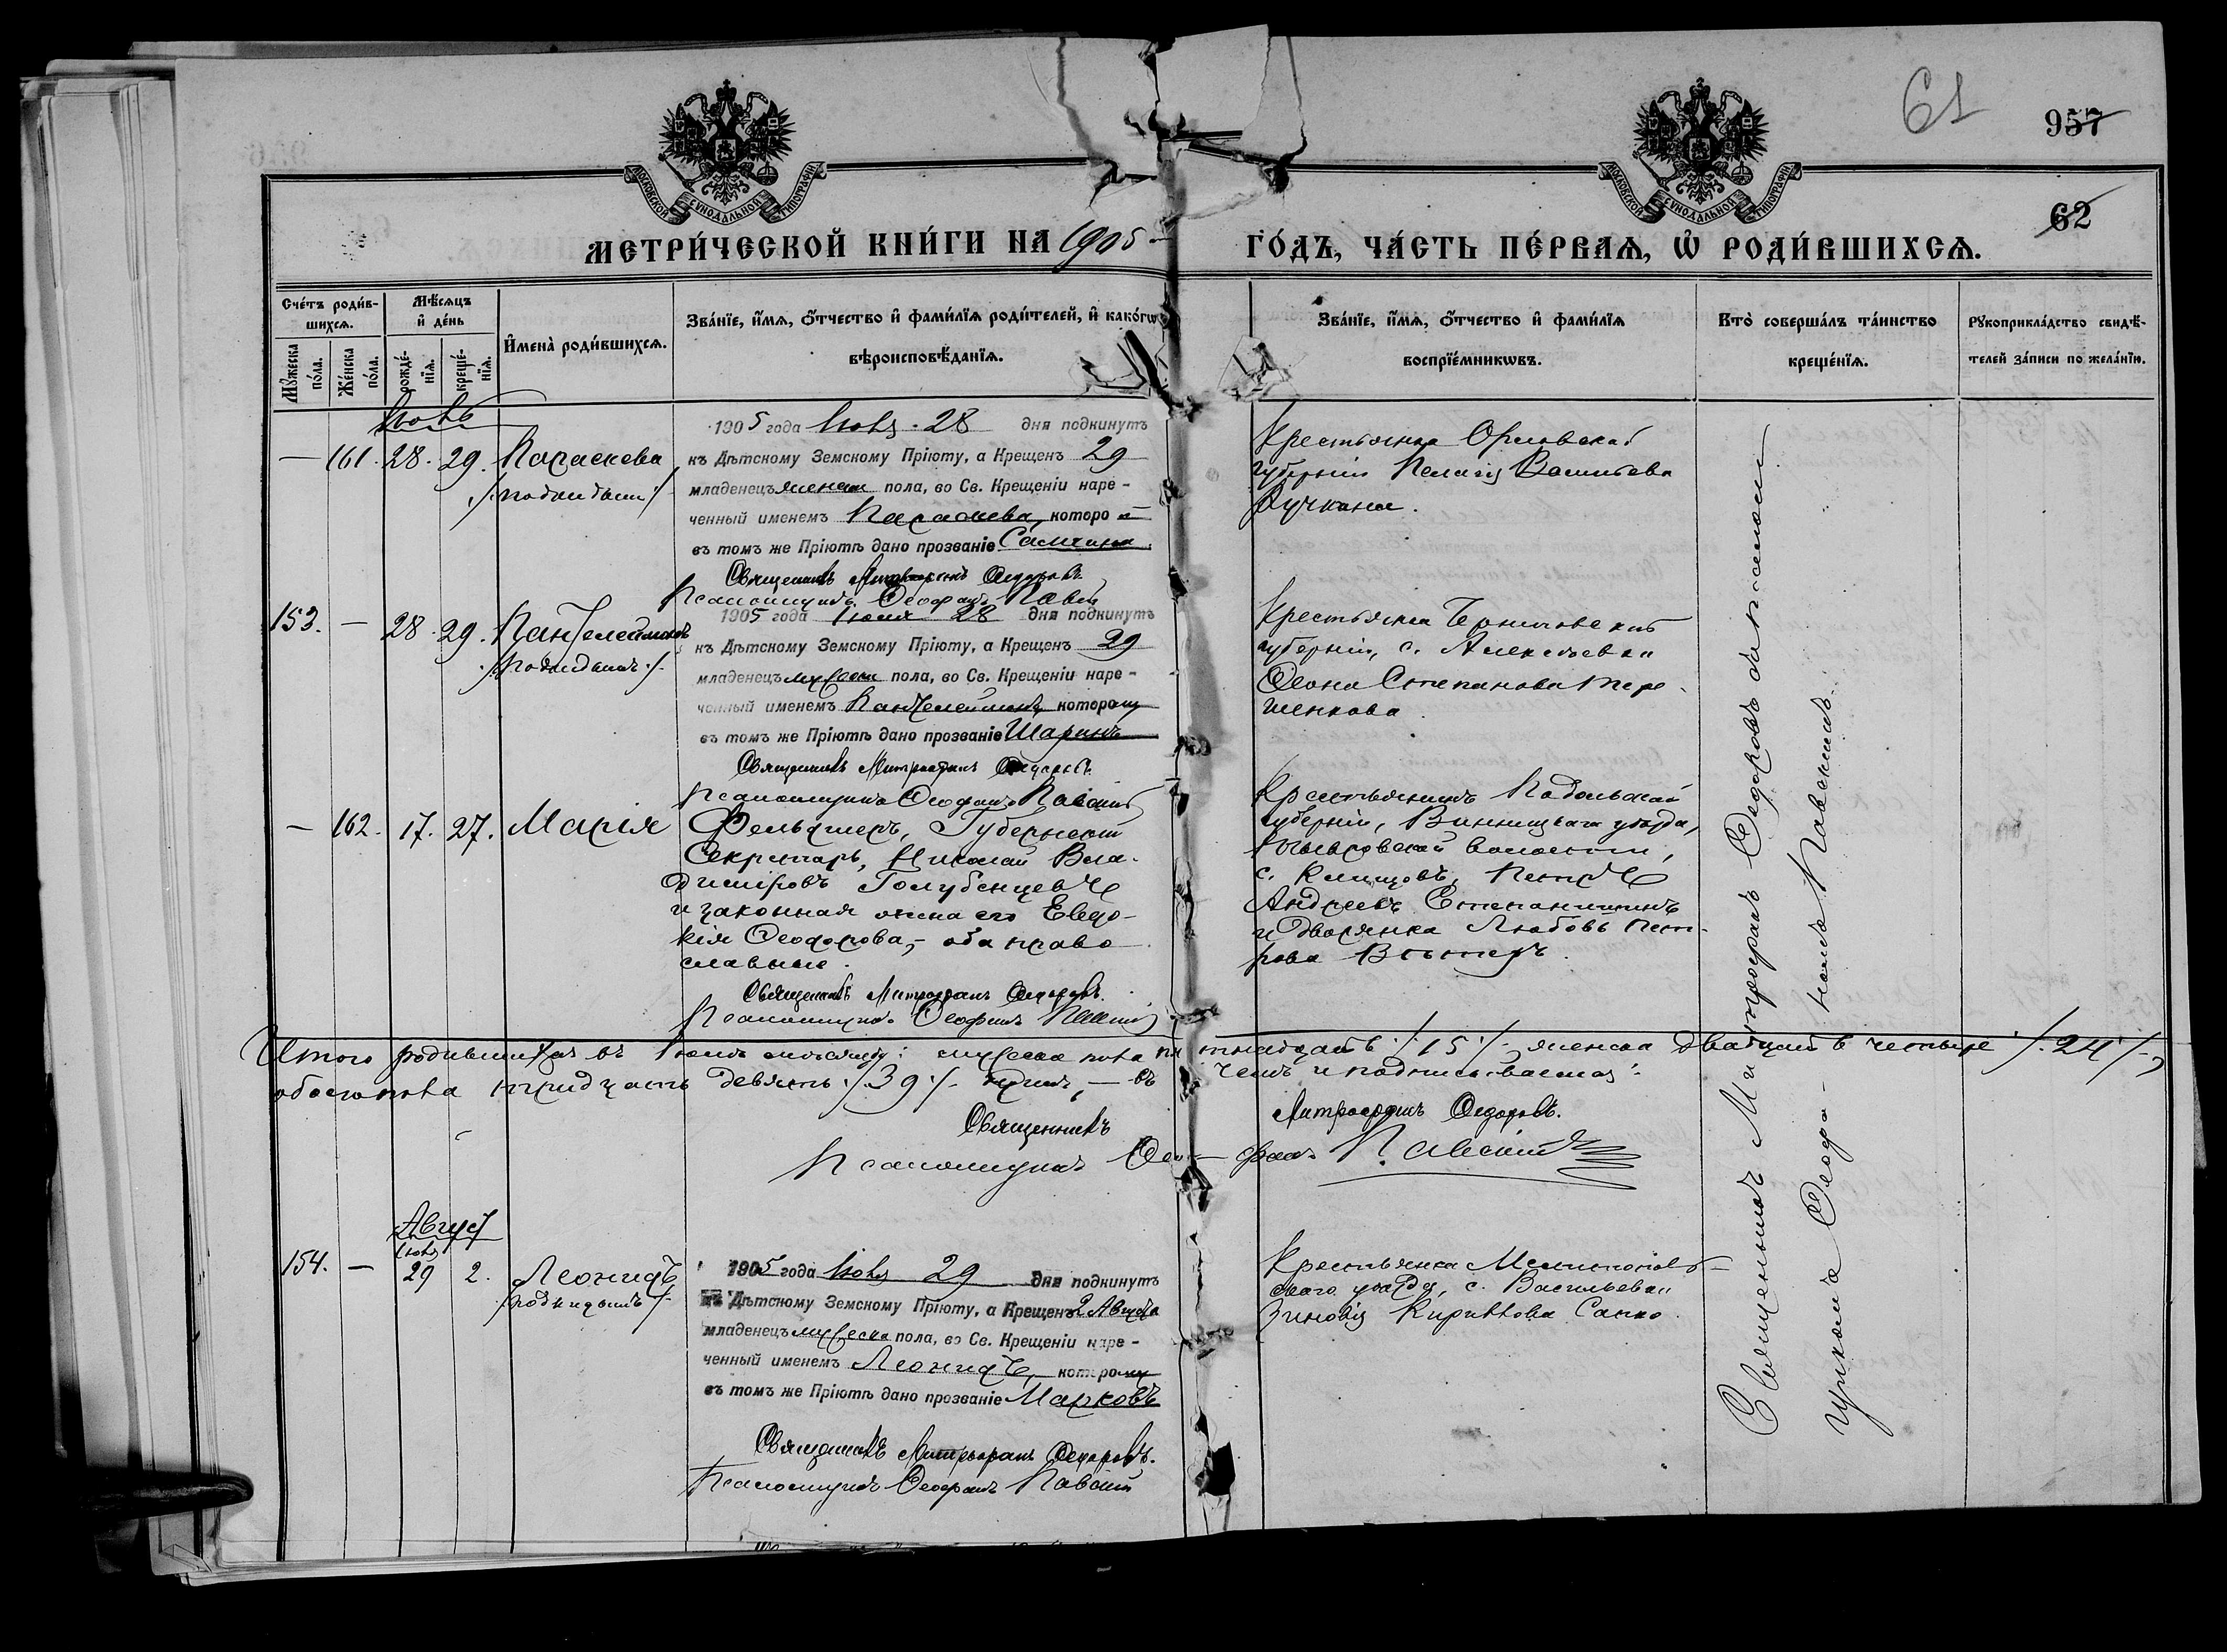 61
957
62
МОСКОВСКОЙ СѴНОДАЛЬНОЙ ТИПОГРАФІИ
МОСКОВСКОЙ СѴНОДАЛЬНОЙ ТИПОГРАФІИ
МЕТРИ́ЧЕСКОЙ КНИ́ГИ НА 1905 ГО́ДЪ, ЧА́СТЬ ПЕ́РВАѦ, Ѡ РОДИ́ВШИХСѦ.
Сче́тъ роди́в-
шихсѧ.
Мꙋ́жеска по́ла.
Же́нска по́ла.
Мѣ́сѧцъ
и҆ де́нь
рожде́-
нїѧ.
креще́-
нїѧ.
И҆мена̀ роди́вшихсѧ.
Зва́нїе, и҆́мѧ, ѻ҆́тчество и҆ фами́лїѧ роди́телей, и҆ како́гѡ
вѣроисповѣ́данїѧ.
Зва́нїе, и҆́мѧ, ѻ҆́тчество и҆ фами́лїѧ
воспрїе́мникѡвъ.
Кто̀ соверша́лъ та́инство
креще́нїѧ.
Рꙋкоприкла́дство свидѣ́-
телей за́писи по жела́нїю.
Іюль
— 161. 28. 29. Параскева
/: подкидыш :/
1905 года Іюля 28 дня подкинутъ
къ Дѣтскому Земскому Пріюту, а Крещенъ 29
младенецъ женск пола, во Св. Крещеніи наре-
ченный именемъ Параскева, которой
въ томъ же Пріютѣ дано прозваніе
Священникъ Митрофанъ Ѳедоровъ.
Псаломщикъ Ѳеофанъ Павскій
Крестьянка Орловской
губерніи Пелагія Васильева
Ручкина.
153. — 28. 29. Пантелеймонъ
/: подкидышъ :/
1905 года Іюля 28 дня подкинутъ
къ Дѣтскому Земскому Пріюту, а Крещенъ 29
младенецъ мужеска пола, во Св. Крещеніи наре-
ченный именемъ Пантелеймонъ, которому
въ томъ же Пріютѣ дано прозваніе Шаринъ
Священникъ Митрофанъ Ѳедоровъ.
Псаломщикъ Ѳеофанъ Павскій
Крестьянка Черниговской
губерніи, с. Алексѣевки
Степанова Тере-
щенкова.
— 162. 17. 27. Марія
Фельдшеръ, Губернскій
Секретарь, Николай Вла-
диміровъ Голубенцевъ
и законная жена его Евдо-
кія Ѳеодорова, оба право-
славные.
Священникъ Митрофанъ Ѳедоровъ.
Псаломщикъ Ѳеофанъ Павскій
Крестьянинъ Подольской
губерніи, Винницкаго уѣзда,
волости,
с. Петръ
Андреевъ Степанишинъ
и Дворянка Любовь Пет-
рова
Итого родившихся въ Іюлѣ мѣсяцѣ: мужеска пола пятнадцать /: 15 :/ женска двадцать четыре /: 24 :/,
обоего пола тридцать девять /: 39 :/ душъ, — въ чемъ и подписываемся:
Священникъ Митрофанъ Ѳедоровъ.
Псаломщикъ Ѳеофанъ Павскій
Августъ
154. — Іюля 29 2. Леонидъ
/: подкидышъ :/
1905 года Іюля 29 дня подкинутъ
къ Дѣтскому Земскому Пріюту, а Крещенъ 2 Августа
младенецъ мужеска пола, во Св. Крещеніи наре-
ченный именемъ Леонидъ, которому
въ томъ же Пріютѣ дано прозваніе Марковъ
Священникъ Митрофанъ Ѳедоровъ.
Псаломщикъ Ѳеофанъ Павскій
Крестьянка Мелитополь-
скаго уѣзда, с. Васильевки
Зиновія Кириллова Сапко.
Священникъ Митрофанъ Ѳедоровъ съ псалом-
щикомъ Ѳеофаномъ Павскимъ.